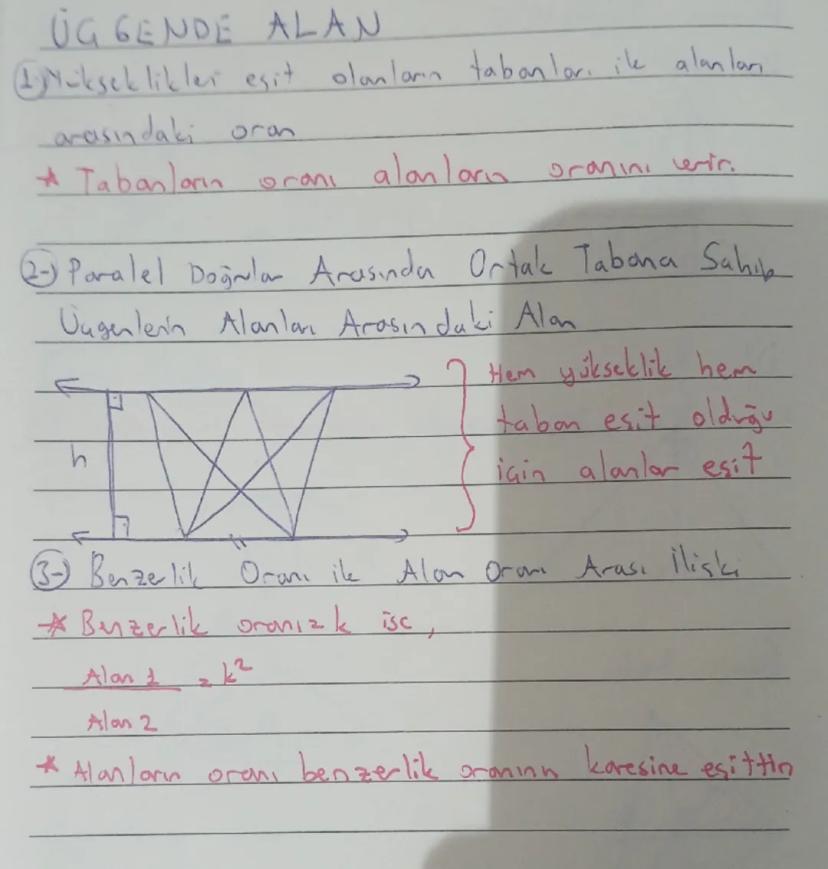 ÜÇGENDE ALAN
1-) Yükseklikleri eşit olanların tabanları ile alanları
arasındaki oran
* Tabanların oranı alanların oranını verir.
2-) Paralel Doğrular Arasında Ortak Tabana Sahip
Üçgenlerin Alanları Arasındaki Alan
Hem yükseklik hem
taban eşit olduğu
için alanlar eşit
h
3-) Benzerlik Oranı ile Alan Oranı Arası İlişki
* Benzerlik oranı = k ise,
Alan 1
= k²
Alan 2
* Alanların oranı benzerlik oranının karesine eşittir